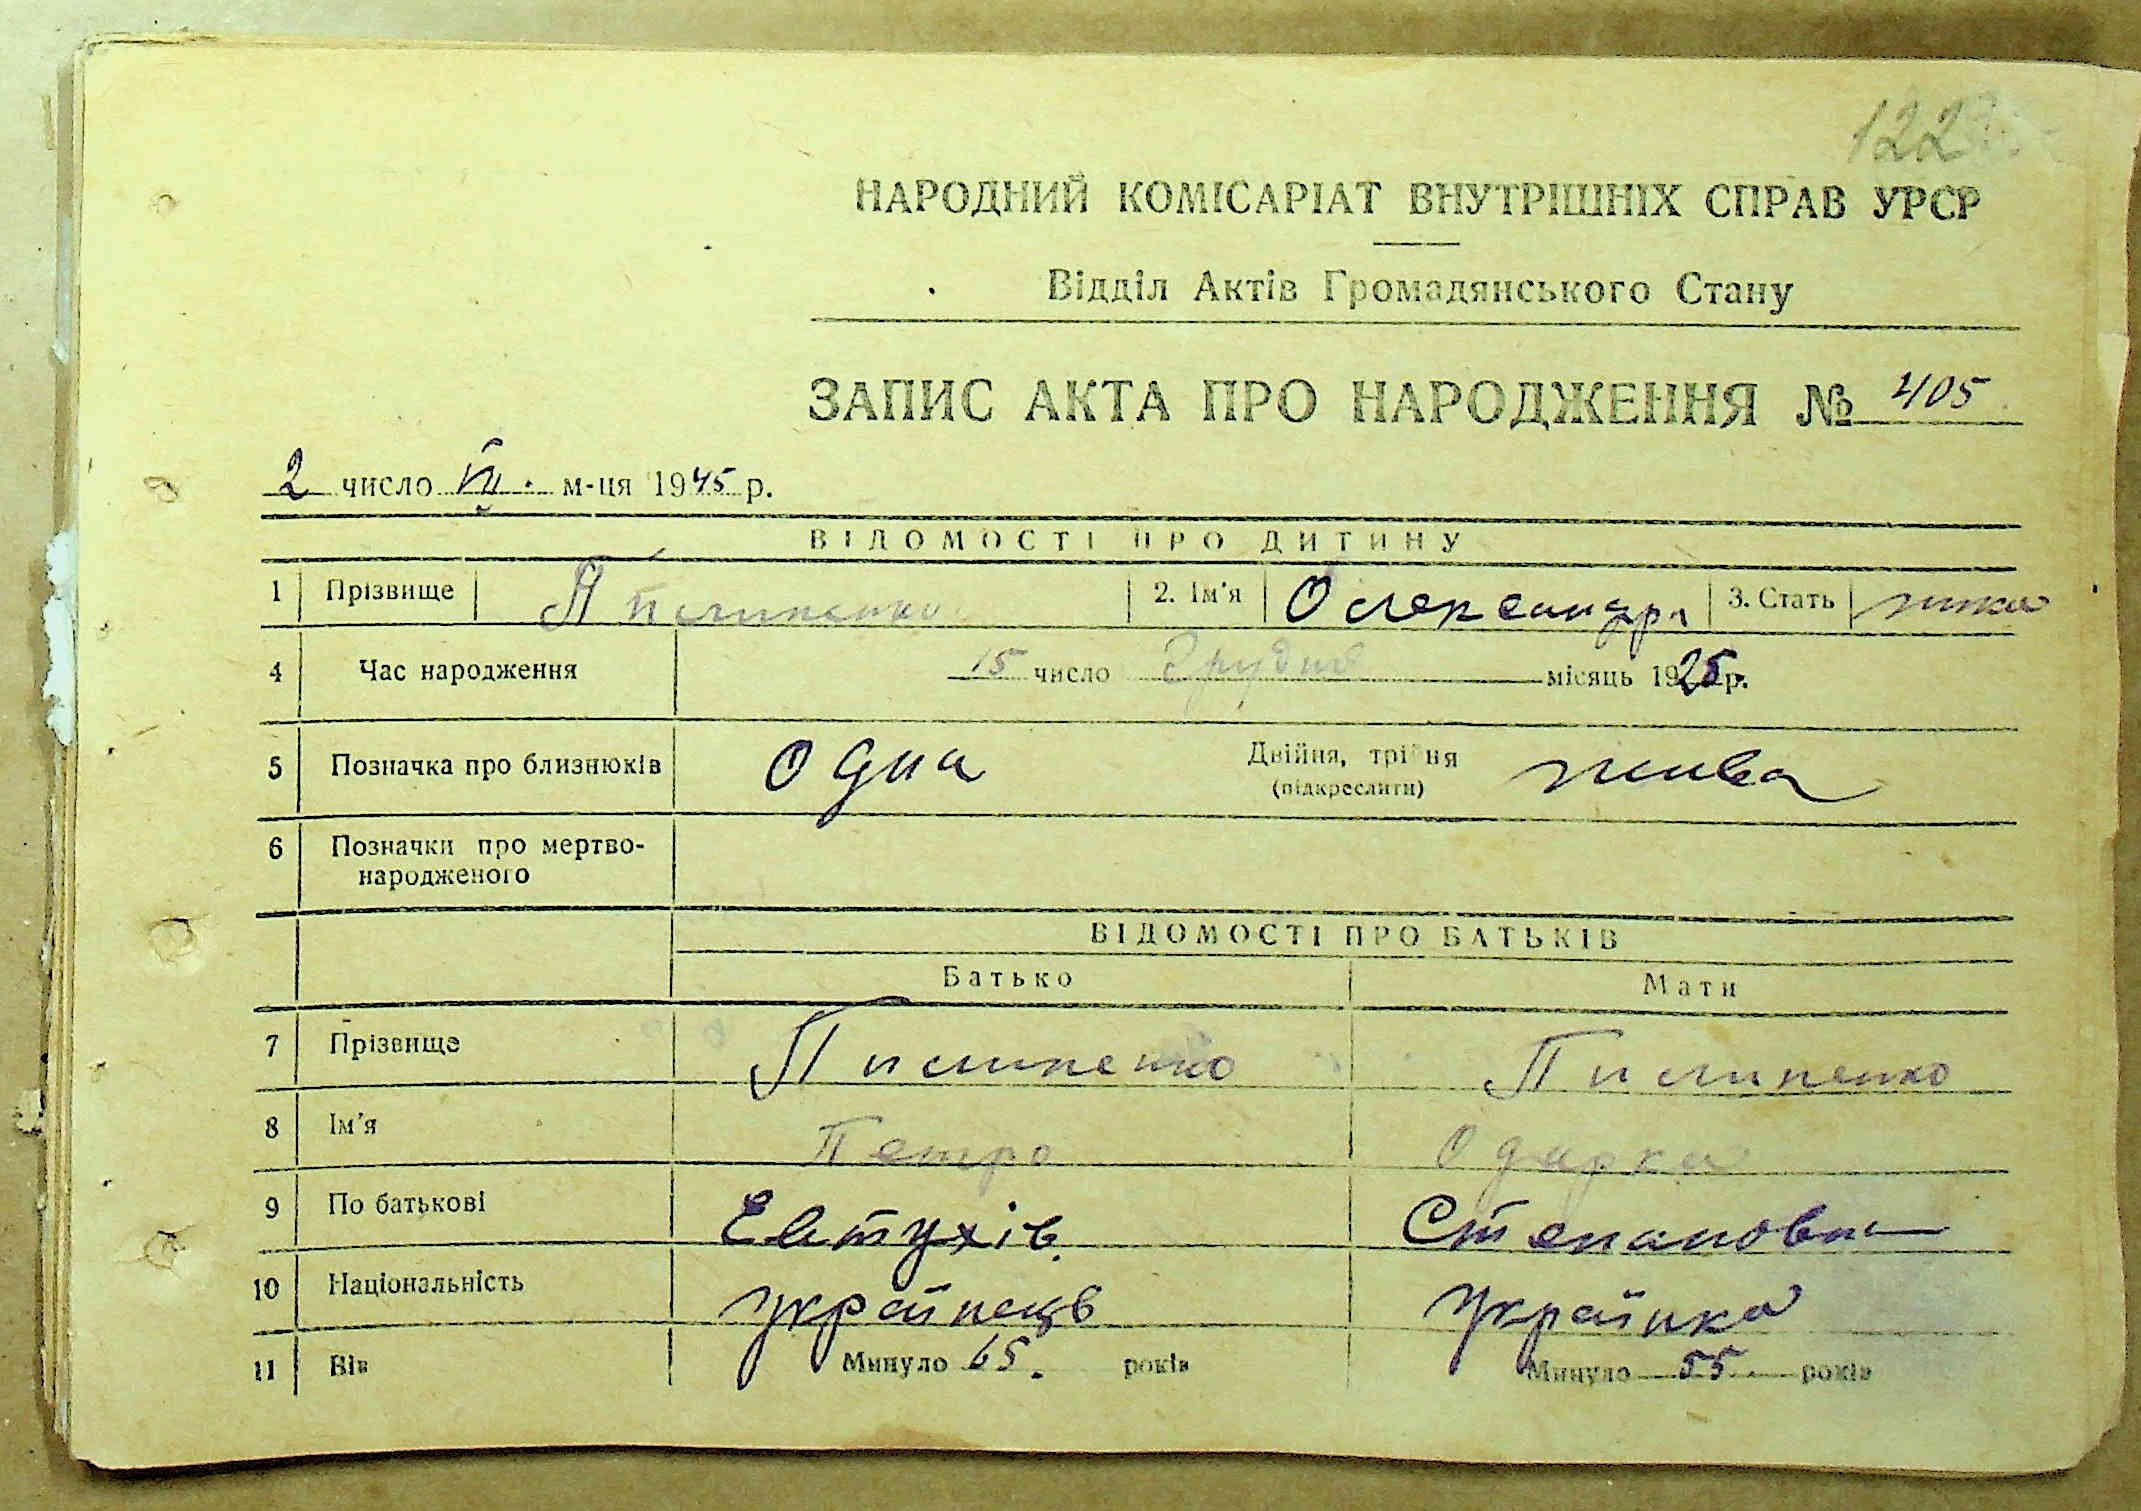 122
НАРОДНИЙ КОМІСАРІАТ ВНУТРІШНІХ СПРАВ УРСР
Відділ Актів Громадянського Стану
ЗАПИС АКТА ПРО НАРОДЖЕННЯ № 405
2 число VII. м-ця 1945 р.
ВІДОМОСТІ ПРО ДИТИНУ
1 Прізвище Пилипенко 2. Ім'я Олександра 3. Стать
4 Час народження 15 число Грудня місяць 1925 р.
5 Позначка про близнюків Одна Двійня, трійня жива
(підкреслити)
6 Позначки про мертво-
народженого
ВІДОМОСТІ ПРО БАТЬКІВ
Батько Мати
7 Прізвище Пилипенко Пилипенко
8 Ім'я Петро Одарка
9 По батькові Евтухів Степановна
10 Національність Українець Українка
11 Вік Минуло 65. років Минуло 55 років